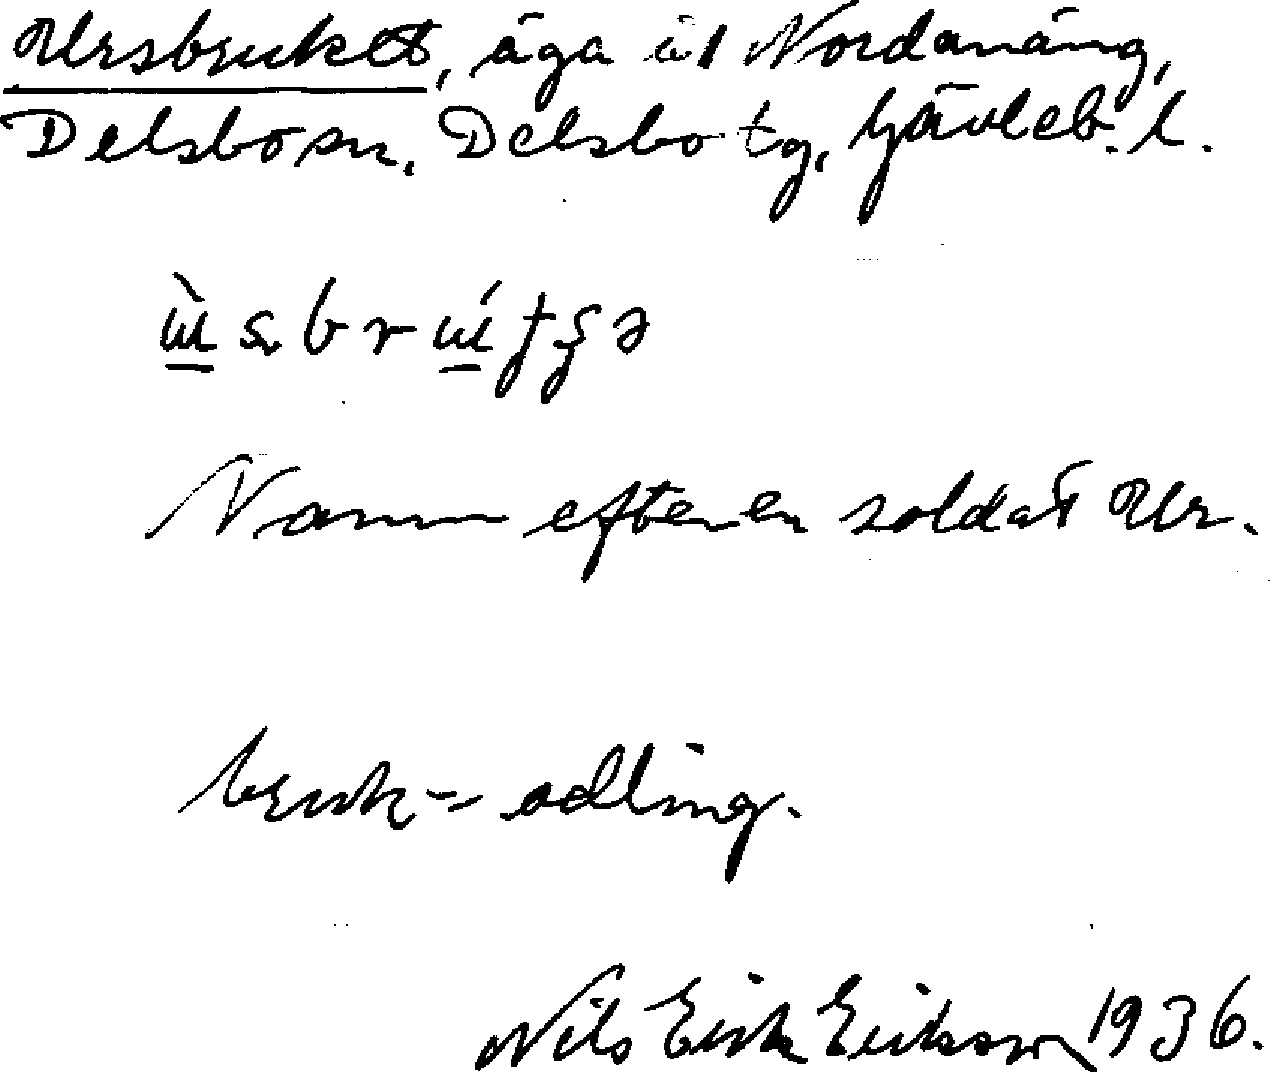 Ursbruket, äga till Nordanäng,
Delsbo sn, Delsbo tg, Gävleb. l.
Namn efter en soldat Ur.
bruk = odling.
Nils Erik Eriksson 1936.